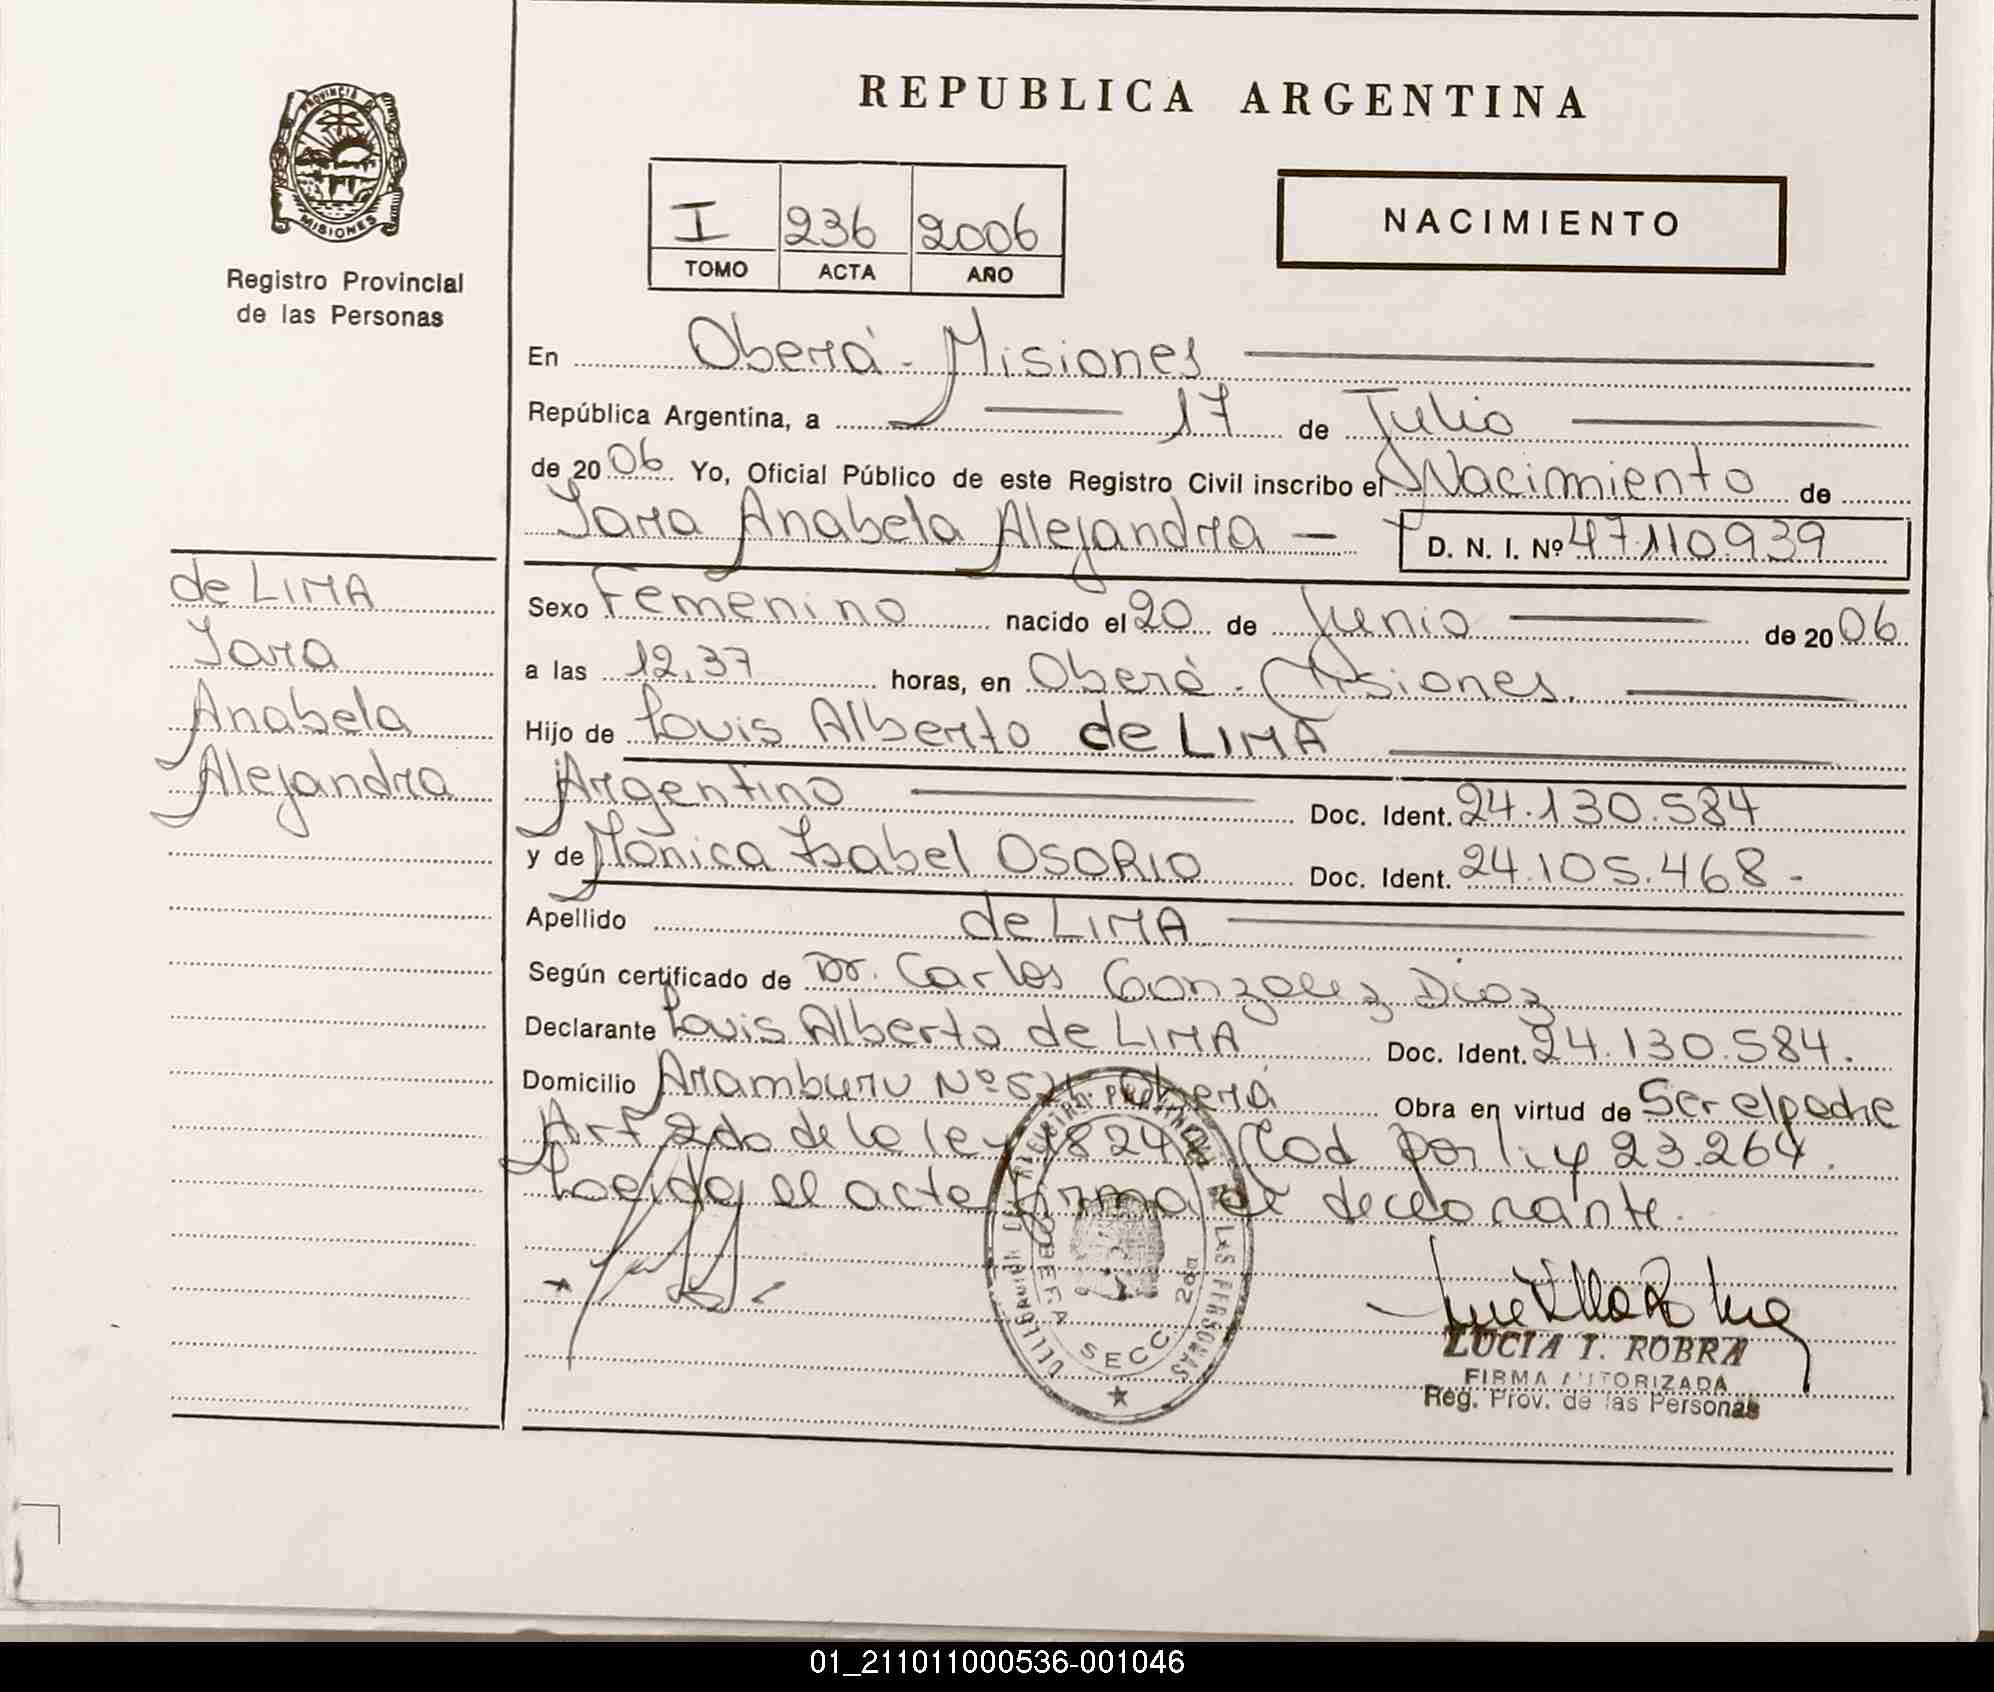 REPUBLICA ARGENTINA
PROVINCIA
MISIONES
Registro Provincial
de las Personas
I 236 2006
TOMO ACTA AÑO
NACIMIENTO
En Oberá - Misiones
República Argentina, a 17 de Julio
de 2006 Yo, Oficial Público de este Registro Civil inscribo el Nacimiento de
Iara Anabela Alejandra D. N. I. Nº 47.110.939
de LIMA
Iara
Anabela
Alejandra
Sexo Femenino nacido el 20 de Junio de 2006
a las 12,37 horas, en Oberá - Misiones.
Hijo de Louis Alberto de LIMA
Argentino Doc. Ident. 24.130.584
y de Mónica Isabel OSORIO Doc. Ident. 24.105.468 -
Apellido de LIMA
Según certificado de Dr. Carlos Gonzalez Diaz
Declarante Louis Alberto de LIMA Doc. Ident. 24.130.584.
Domicilio Aramburu Nº Oberá Obra en virtud de Ser el padre
Art 2do de la ley 18248 Mod por ley 23.264.
Loeida el acta firma el declarante.
DELEGACION DEL REGISTRO PROVINCIAL DE LAS PERSONAS
OBERA SECC. 2da
LUCIA I. ROBRA
FIRMA AUTORIZADA
Reg. Prov. de las Personas
01_211011000536-001046